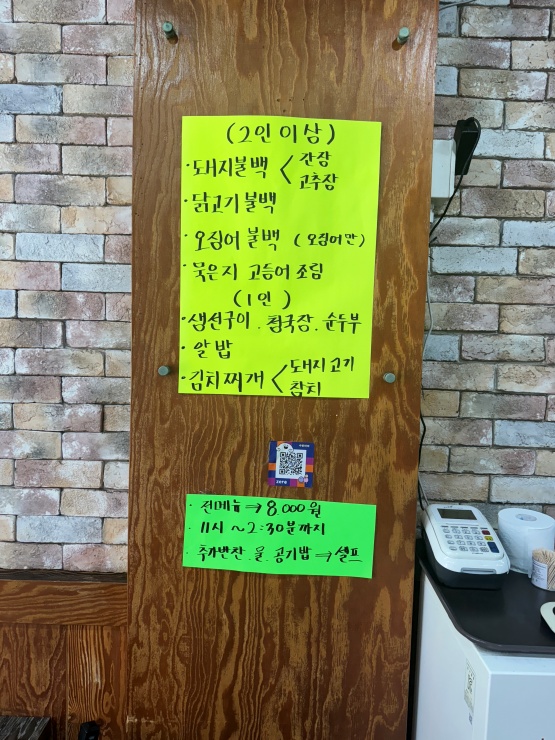 (2인 이상)
· 돼지불백 < 간장
고추장
· 닭고기불백
· 오징어 불백 (오징어만)
· 묵은지 고등어 조림
(1인)
· 생선구이 . 청국장 . 순두부
· 알밥
· 김치찌개 < 돼지고기
참치
zero
· 전메뉴 ⇒ 8,000원
· 11시 ~ 2:30분까지
· 추가반찬. 물. 공기밥 ⇒ 셀프